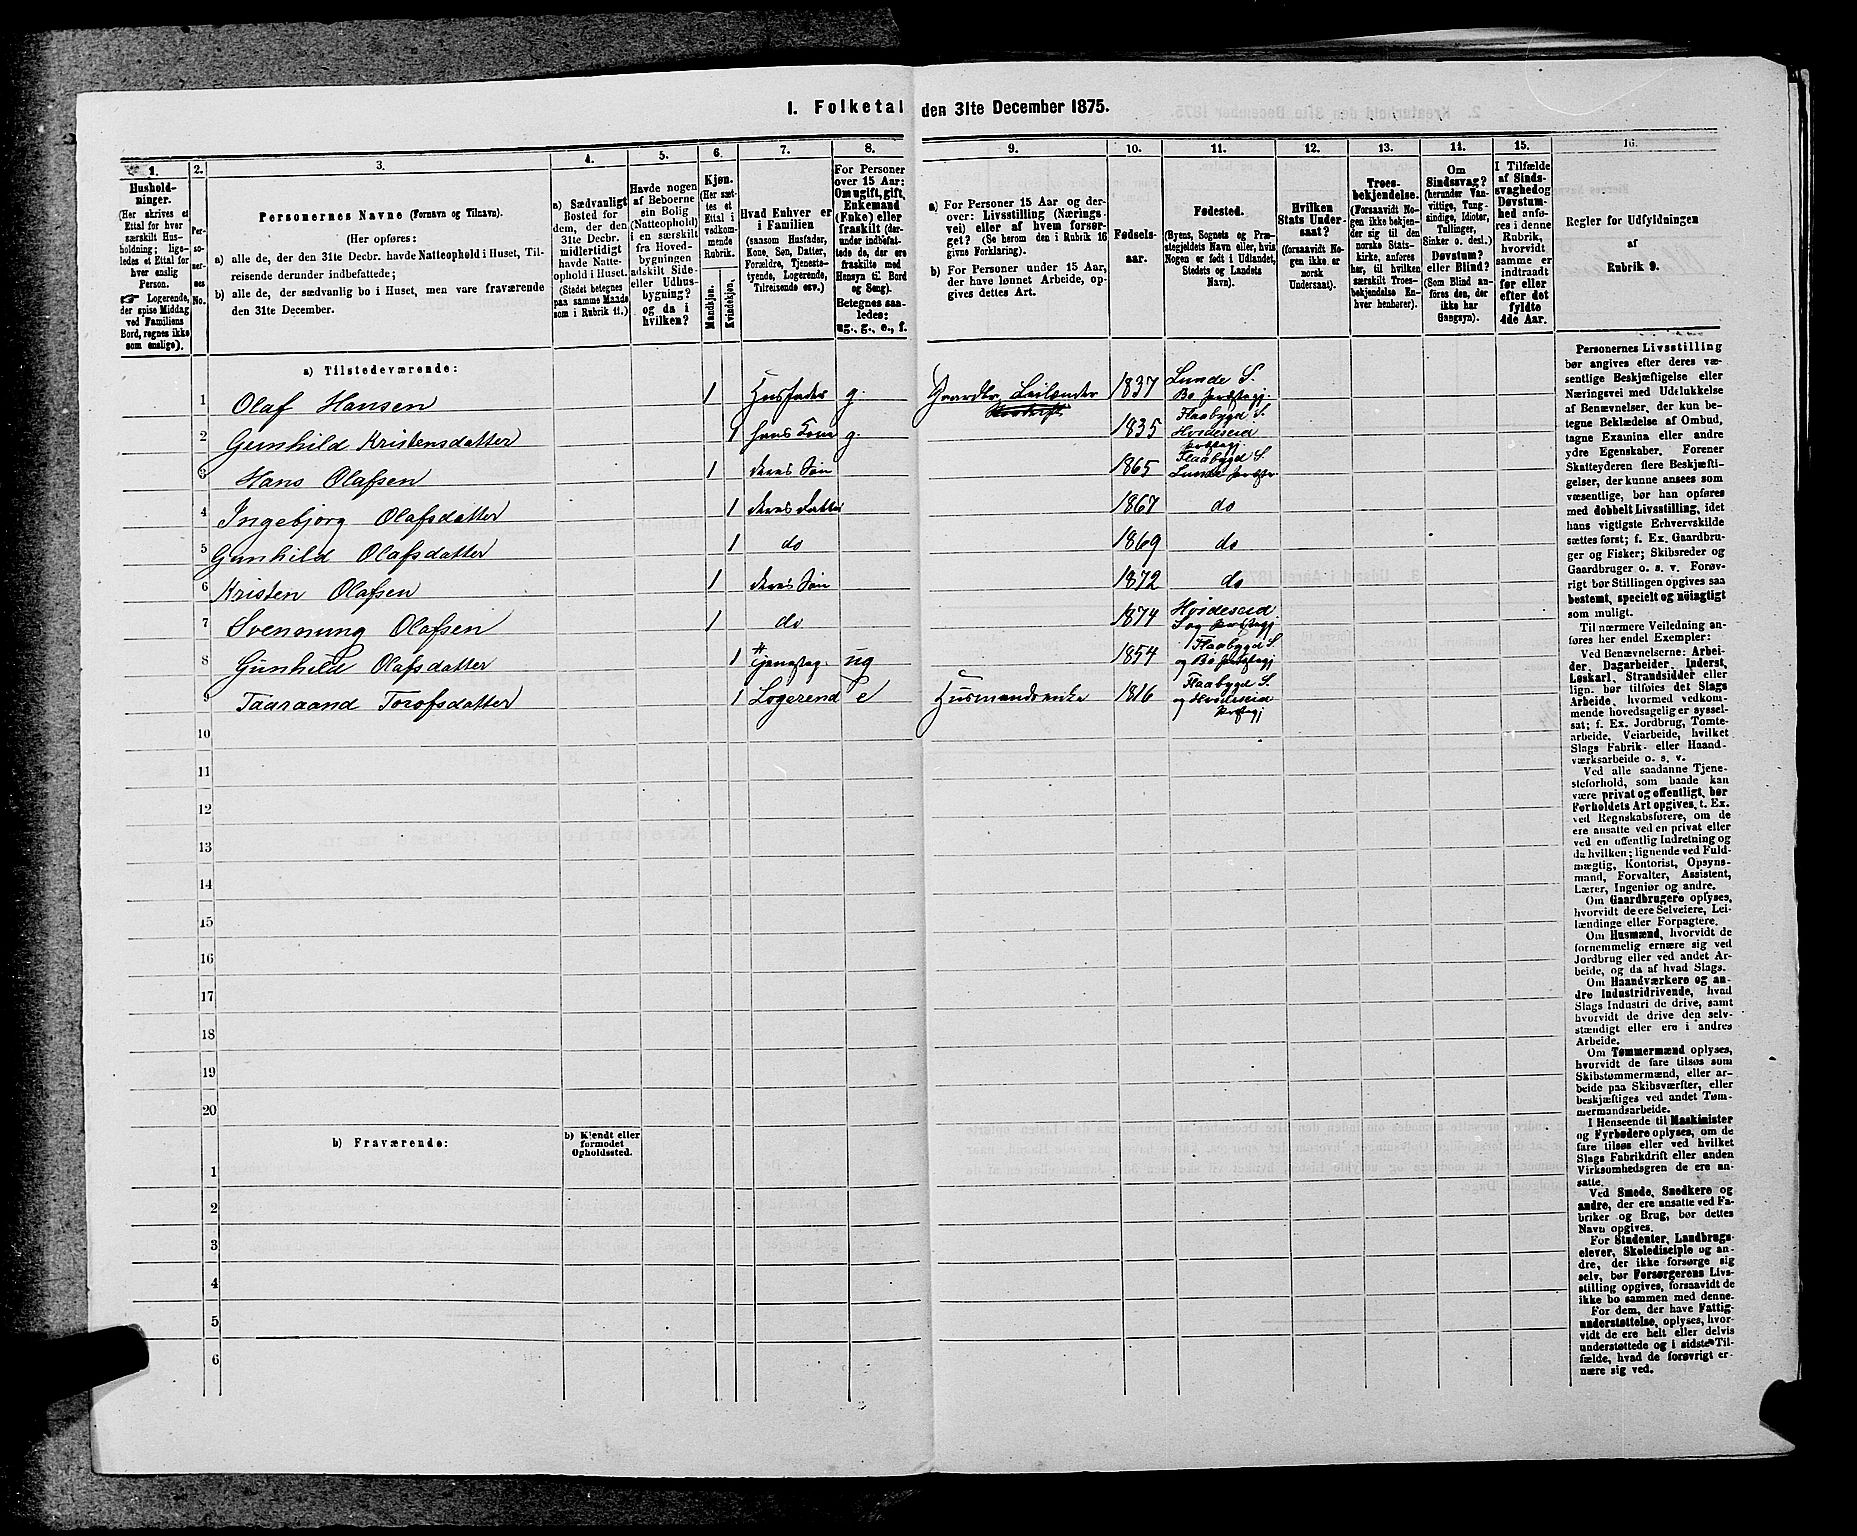 1. Folketal den 31te December 1875.
1.
Hushold-
ninger.
(Her skrives et
Ettal for hver
særskilt Hus-
holdning; lige-
ledes et Ettal for
hver enslig
Person.
☞ Logerende,
der spise Middag
ved Familiens
Bord, regnes ikke
som enslige).
2.
Per-
so-
ner-
nes
No.
3.
Personernes Navne (Fornavn og Tilnavn).
(Her opføres:
a) alle de, der den 31te Decbr. havde Natteophold i Huset, Til-
reisende derunder indbefattede;
b) alle de, der sædvanlig bo i Huset, men vare fraværende
den 31te December.
4.
a) Sædvanligt
Bosted for
dem, der den
31te Decbr.
midlertidigt
havde Natte-
ophold i Huset.
(Stedet betegnes
paa samme Maade
som i Rubrik 11.)
5.
Havde nogen
af Beboerne
sin Bolig
(Natteophold)
i en særskilt
fra Hoved-
bygningen
adskilt Side-
eller Udhus-
bygning?
og da i
hvilken?
6.
Kjøn.
(Her sæt-
tes et
Ettal i
vedkom-
mende
Rubrik.
Mandkjøn.
Kvindekjøn.
7.
Hvad Enhver er
i Familien
(saasom Husfader,
Kone, Søn, Datter,
Forældre, Tjeneste-
tyende, Logerende,
Tilreisende osv.)
8.
For Personer
over 15 Aar:
Om ugift, gift,
Enkemand
(Enke) eller
fraskilt (der-
under indbefat-
tede de, der ere
fraskilte med
Hensyn til Bord
og Seng).
Betegnes saa-
ledes:
ug., g., e., f.
9.
a) For Personer 15 Aar og der-
over: Livsstilling (Nærings-
vei) eller af hvem forsør-
get? (Se herom den i Rubrik 16
givne Forklaring).
b) For Personer under 15 Aar,
der have lønnet Arbeide, op-
gives dettes Art.
10.
Fødsels-
aar.
11.
Fødested.
(Byens, Sognets og Præ-
stegjeldets Navn eller, hvis
Nogen er født i Udlandet,
Stedets og Landets
Navn).
12.
Hvilken
Stats Under-
saat?
(forsaavidt No-
gen ikke er
norsk
Undersaat).
13.
Troes-
bekjendelse.
(Forsaavidt No-
gen ikke bekjen-
der sig til den
norske Stats-
kirke, anføres
her, til hvilken
særskilt Troes-
bekjendelse En-
hver henhører).
14.
Om
Sindssvag?
(herunder Van-
vittige, Tung-
sindige, Idioter,
Tullinger,
Sinker o. desl.)
Døvstum?
eller Blind?
(Som Blind an-
føres den, der
ikke har
Gangsyn).
15.
I Tilfælde
af Sinds-
svaghed og
Døvstum-
hed anfø-
res i denne
Rubrik,
hvorvidt
samme er
indtraadt
før eller
efter det
fyldte
4de Aar.
16.
Regler for Udfyldningen
af
Rubrik 9.
a) Tilstedeværende:
1 Olaf Hansen 1 Husfader g. Gaardbr. Leilænder 1837 Lunde S.
Bø præstegj.
2 Gunhild Kristensdatter 1 hans Kone g. 1835 Flaabygd S.
Hvideseid
præstegj.
3 Hans Olafsen 1 deres Søn 1865 Flaabygd S.
Lunde præstgj
4 Ingebjørg Olafsdatter 1 deres datter 1867 do
5 Gunhild Olafsdatter 1 do 1869 do
6 Kristen Olafsen 1 deres Søn 1872 do
7 Svennung Olafsen 1 do 1874 Hvideseid
S og præstegj
8 Gunhild Olafsdatter 1 tjenesteg. ug 1854 Flaabygd S.
og Bø præstegj
9 Taaraand Torofsdatter 1 Logerend e Husmandsenke 1816 Flaabygd S.
og Hvideseid
præstegj
10
11
12
13
14
15
16
17
18
19
20
b) Fraværende:
b) Kjendt eller
formodet
Opholdssted.
1
2
3
4
5
6
Personernes Livsstilling
bør angives efter deres væ-
sentlige Beskjæftigelse eller
Næringsvei med Udelukkelse
af Benævnelser, der kun be-
tegne Beklædelse af Ombud,
tagne Examina eller andre
ydre Egenskaber. Forener
Skatteyderen flere Beskjæfti-
gelser, der kunne ansees som
væsentlige, bør han opføres
med dobbelt Livsstilling, idet
hans vigtigste Erhvervskilde
sættes først; f. Ex. Gaardbru-
ger og Fisker; Skibsreder og
Gaardbruger o. s. v. Forøv-
rigt bør Stillingen opgives saa
bestemt, specielt og nøiagtigt
som muligt.
Til nærmere Veiledning an-
føres her endel Exempler:
Ved Benævnelserne: Arbei-
der, Dagarbeider, Inderst,
Løskarl, Strandsidder eller
lign. bør tilføies det Slags
Arbeide, hvormed vedkom-
mende hovedsagelig er syssel-
sat; f. Ex. Jordbrug, Tomte-
arbeide, Veiarbeide, hvilket
Slags Fabrik- eller Haand-
værksarbeide o. s. v.
Ved alle saadanne Tjene-
steforhold, som baade kan
være privat og offentligt, bør
Forholdets Art opgives, t. Ex.
ved Regnskabsførere, om de
ere ansatte ved en privat eller
ved en offentlig Indretning og
da hvilken; lignende ved Fuld-
mægtig, Kontorist, Opsyns-
mand, Forvalter, Assistent,
Lærer, Ingeniør og andre.
Om Gaardbrugere oplyses,
hvorvidt de ere Selveiere, Lei-
lændinge eller Forpagtere.
Om Husmænd, hvorvidt de
fornemmelig ernære sig ved
Jordbrug eller ved andet Ar-
beide, og da af hvad Slags.
Om Haandværkere og an-
dre Industridrivende, hvad
Slags Industri de drive, samt
hvorvidt de drive den selv-
stændigt eller ere i andres
Arbeide.
Om Tømmermænd oplyses,
hvorvidt de fare tilsøs som
Skibstømmermænd, eller ar-
beide paa Skibsværfter, eller
beskjæftiges ved andet Tøm-
mermandsarbeide.
I Henseende til Maskinister
og Fyrbødere oplyses, om de
fare tilsøs eller ved hvilket
Slags Fabrikdrift eller anden
Virksomhedsgren de ere an-
satte.
Ved Smede, Snedkere og
andre, der ere ansatte ved Fa-
briker og Brug, bør dettes
Navn opgives.
For Studenter, Landbrugs-
elever, Skoledisciple og an-
dre, der ikke forsørge sig
selv, bør Forsørgerens Livs-
stilling opgives, forsaavidt de
ikke bo sammen med denne.
For dem, der have Fattig-
understøttelse, oplyses, hvor-
vidt de ere helt eller delvis
understøttede og i sidste Til-
fælde, hvad de forøvrigt er-
nære sig ved.